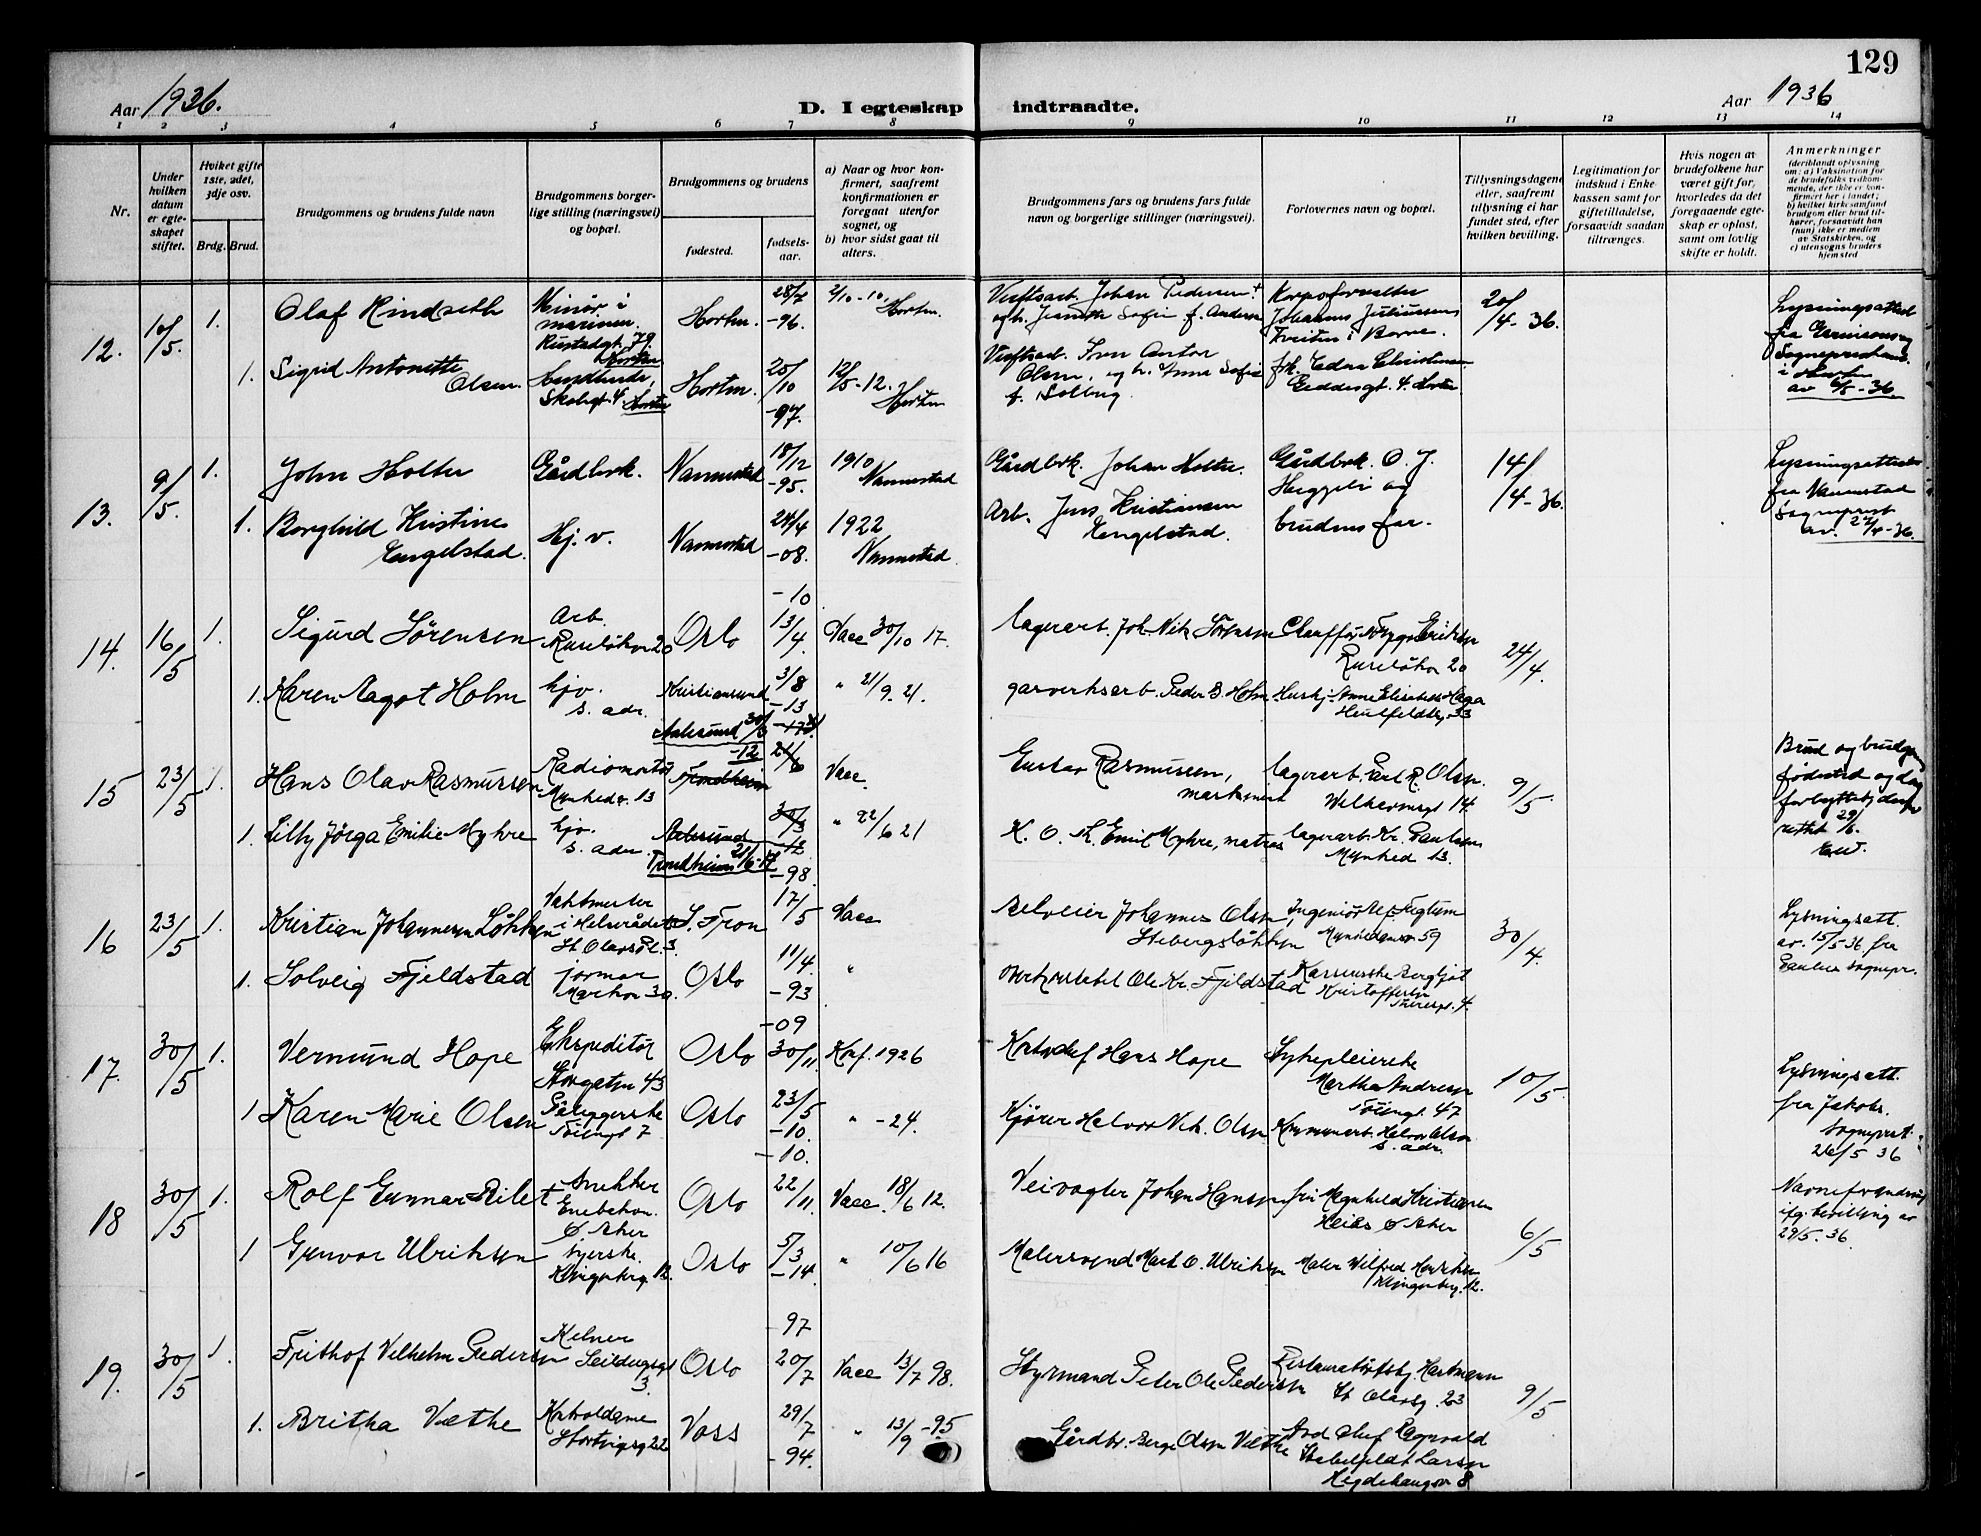 129
Aar 1936.
D. I egteskap indtraadte.
Aar 1936
1 2 3 4 5 6 7 8 9 10 11 12 13 14
Nr.
Under hvilken datum er egteskapet stiftet.
Hvilket gifte 1ste, 2det, 3dje osv.
Brdg. Brud.
Brudgommens og brudens fulde navn
Brudgommens borgerlige stilling (næringsvei) og bopæl.
Brudgommens og brudens
fødested.
fødselsaar.
a) Naar og hvor konfirmert, saafremt konfirmationen er foregaat utenfor sognet, og
b) hvor sidst gaat til alters.
Brudgommens fars og brudens fars fulde navn og borgerlige stillinger (næringsvei).
Forlovernes navn og bopæl.
Tillysningsdagene eller, saafremt tillysning ei har fundet sted, efter hvilken bevilling.
Legitimation for indskud i Enkekassen samt for giftetilladelse, forsaavidt saadan tiltrænges.
Hvis nogen av brudefolkene har været gift før, hvorledes da det foregaaende egteskap er opløst, samt om lovlig skifte er holdt.
Anmerkninger (deriblandt oplysning om: a) Vaksination for de brudefolks vedkommende, der ikke er konfirmert her i landet; b) hvilket kirkesamfund brudgom eller brud tilhører, forsaavidt han (hun) ikke er medlem av Statskirken, og c) utensogns bruders hjemsted
12. 10/5. 1. Olaf Rindseth
Minør i marinen. Rustadgt. 79. Horten
Horten. 28/7 -96.
2/10-10. Horten.
Verftsarb. Johan Pedersen † og h. Jeanette Sofie f. Andersen
Korpsforvalter Johannes Juliussen
20/4-36.
Lysningsattest fra Garnisons Sogneprest i Horten av 6/5-36.
1. Sigrid Antonette Olsen.
Skolegt. 4 Horten
Horten. 20/10 -97.
12/5-12. Horten
Verftsarb. Anton Olsen, og h. Anne Sofie f. Solberg
frk. Edna Christensen Geddesgt. 4. Horten
13. 9/5. 1. John Holter
Gårdbrk. Nannestad 18/12 -95.
1910 Nannestad
Gårdbrk. Johan Holter.
Gårdbrk. O. J. og brudens far.
14/4-36.
Lysningsattest fra Nannestad Sogneprest av. 24/4-36.
1. Borghild Kristine Engelstad.
Hj. v. Nannestad 24/4 -08.
1922 Nannestad.
Arb. Jens Kristiansen Engelstad.
14. 16/5 1. Sigurd Sörensen
Arb. Ruseløkvn 20 Oslo -10 13/4.
Vacc 30/10 17.
Lagerarb. Joh. Nik Sörensen
Chauffør Trygve Eriksen Ruseløkvn 20
24/4.
1. Karen Aagot Holm
hjv. s. adr. Kristiansund 3/8 -13
" 21/9. 21.
garverksarb. Peder B. Holm
Hushj. Anne Elisabeth Haga Huitfeldtsg. 33
15 23/5 1. Hans Olav Rasmussen
Radiomontør Munkedv. 13
Aalesund 30/3 -12
Trondheim 21/6
Vacc.
Gustav Rasmussen,
lagerarb. Karl R. Olsen. Wilhelmsgt 14.
9/5.
Brud og brudgoms fødested og dag forbyttet; derfor rettet 29/6.
1. Lilly Jörga Emilie Myhre
hjv. s. adr. Aalesund 30/3 -12
Trondheim 21/6-13
" 22/6 21
K. O. M. Emil Myhre, matros
lagerarb. Kr. Paulsen Munked 13.
16 23/5 1. Kristian Johannesen Løkken
Vaktmester i Helserådet St. Olavs Pl. 3
S. Fron -98. 17/5
Vacc
Selveier Johannes Olsen, Stebergsløkken
Ingeniør Munkedamsv 59
30/4.
Lysningsatt. av. 15/5 36 fra Paulus sognepr.
1. Solveig Fjeldstad
jormor Oslo 11/4. -93
"
Ole Kr. Fjeldstad
Bergljot Kristoffersen
17. 30/5 1. Vermund Hope
Ekspeditör Storgaten 43 Oslo -09 30/11.
Konf. 1926
Hans Hope
Sykepleierske Martha Andresen Töiengt. 47
10/5.
Lysningsatt. fra Jakobs. Sogneprest 26/5 36
1 Karen Marie Olsen
Töiengt 7 Oslo 23/5 -10.
" -24.
Kjører Halvor Nik. Olsen
Kommunearb. Halvor Olsen s. adr.
18 30/5 1. Rolf Gunnar Rilet
Snekker Enebakv. Ø. Aker Oslo -10. 22/11.
Vacc 18/6 12.
Veivogter Johan Hansen
fru Magnhild Kristiansen Ø Aker
6/5
Navneforandring ifg. bevilling av 29/5. 36.
1 Gunvor Ulriksen
syerske Klingenberg. 12. Oslo 5/3 -14.
" 10/6 16
Malersvend Mart. O. Ulriksen
Maler Wilfred Klingenberg. 12.
19. 30/5 1. Frithof Vilhelm Pedersen
Kelner Seildugsgt 3. Oslo -97 20/7
Vacc 13/7 98.
Styrmand Peter Ole Pedersen
Hartmann St Olavsg. 23
9/5
1. Britha Væthe
Kontoldame Stortingsg 22 Voss 29/7 -94.
" 13/9 -95
Gårdbr. Berge Olsen Væthe
Ragnvald Stabelfeldt Larsen Hegdehaugsv 8